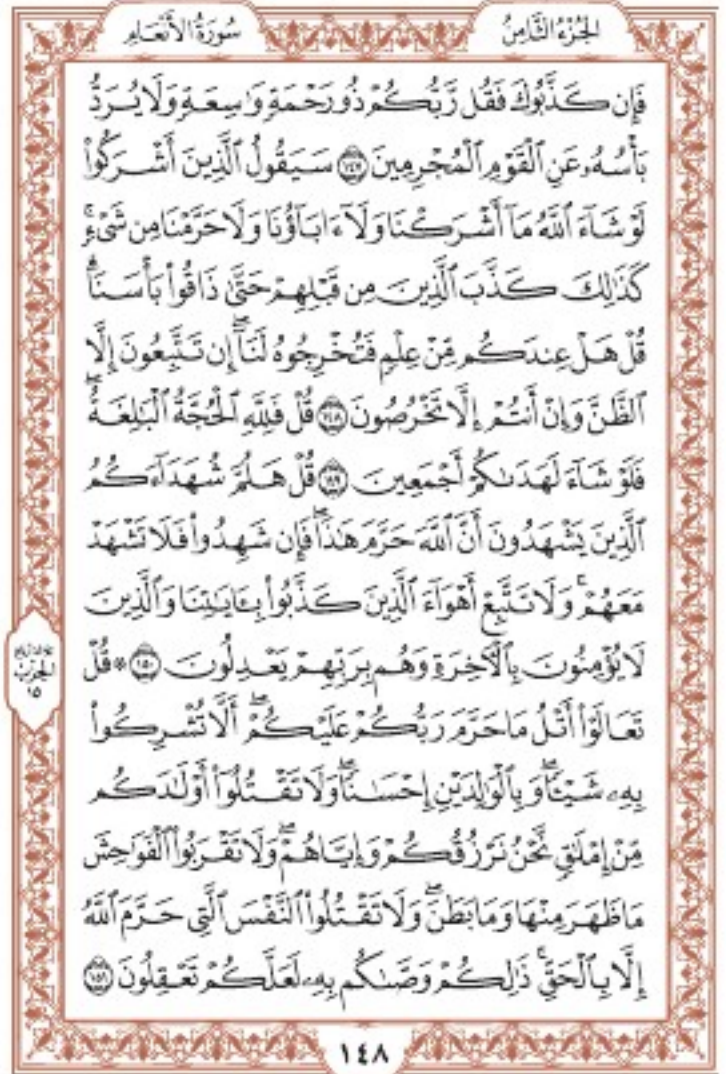 سُورَةُ الأَنْعَام
الجُزْءُ الثَّامِنُ
فَإِن كَذَّبُوكَ فَقُل رَّبُّكُمْ ذُو رَحْمَةٍ وَٰسِعَةٍ وَلَا يُرَدُّ
بَأْسُهُۥ عَنِ ٱلْقَوْمِ ٱلْمُجْرِمِينَ ١٤٧ سَيَقُولُ ٱلَّذِينَ أَشْرَكُوا۟
لَوْ شَآءَ ٱللَّهُ مَآ أَشْرَكْنَا وَلَآ ءَابَآؤُنَا وَلَا حَرَّمْنَا مِن شَىْءٍ ۚ
كَذَٰلِكَ كَذَّبَ ٱلَّذِينَ مِن قَبْلِهِمْ حَتَّىٰ ذَاقُوا۟ بَأْسَنَا ۗ
قُلْ هَلْ عِندَكُم مِّنْ عِلْمٍ فَتُخْرِجُوهُ لَنَآ ۖ إِن تَتَّبِعُونَ إِلَّا
ٱلظَّنَّ وَإِنْ أَنتُمْ إِلَّا تَخْرُصُونَ ١٤٨ قُلْ فَلِلَّهِ ٱلْحُجَّةُ ٱلْبَٰلِغَةُ ۖ
فَلَوْ شَآءَ لَهَدَىٰكُمْ أَجْمَعِينَ ١٤٩ قُلْ هَلُمَّ شُهَدَآءَكُمُ
ٱلَّذِينَ يَشْهَدُونَ أَنَّ ٱللَّهَ حَرَّمَ هَٰذَا ۖ فَإِن شَهِدُوا۟ فَلَا تَشْهَدْ
مَعَهُمْ ۚ وَلَا تَتَّبِعْ أَهْوَآءَ ٱلَّذِينَ كَذَّبُوا۟ بِـَٔايَٰتِنَا وَٱلَّذِينَ
لَا يُؤْمِنُونَ بِٱلْءَاخِرَةِ وَهُم بِرَبِّهِمْ يَعْدِلُونَ ١٥٠ ۞ قُلْ
تَعَالَوْا۟ أَتْلُ مَا حَرَّمَ رَبُّكُمْ عَلَيْكُمْ ۖ أَلَّا تُشْرِكُوا۟
بِهِۦ شَيْـًٔا ۖ وَبِٱلْوَٰلِدَيْنِ إِحْسَٰنًا ۖ وَلَا تَقْتُلُوٓا۟ أَوْلَٰدَكُم
مِّنْ إِمْلَٰقٍ ۖ نَّحْنُ نَرْزُقُكُمْ وَإِيَّاهُمْ ۖ وَلَا تَقْرَبُوا۟ ٱلْفَوَٰحِشَ
مَا ظَهَرَ مِنْهَا وَمَا بَطَنَ ۖ وَلَا تَقْتُلُوا۟ ٱلنَّفْسَ ٱلَّتِى حَرَّمَ ٱللَّهُ
إِلَّا بِٱلْحَقِّ ۚ ذَٰلِكُمْ وَصَّىٰكُم بِهِۦ لَعَلَّكُمْ تَعْقِلُونَ ١٥١
الحِزْبُ
١٥
١٤٨